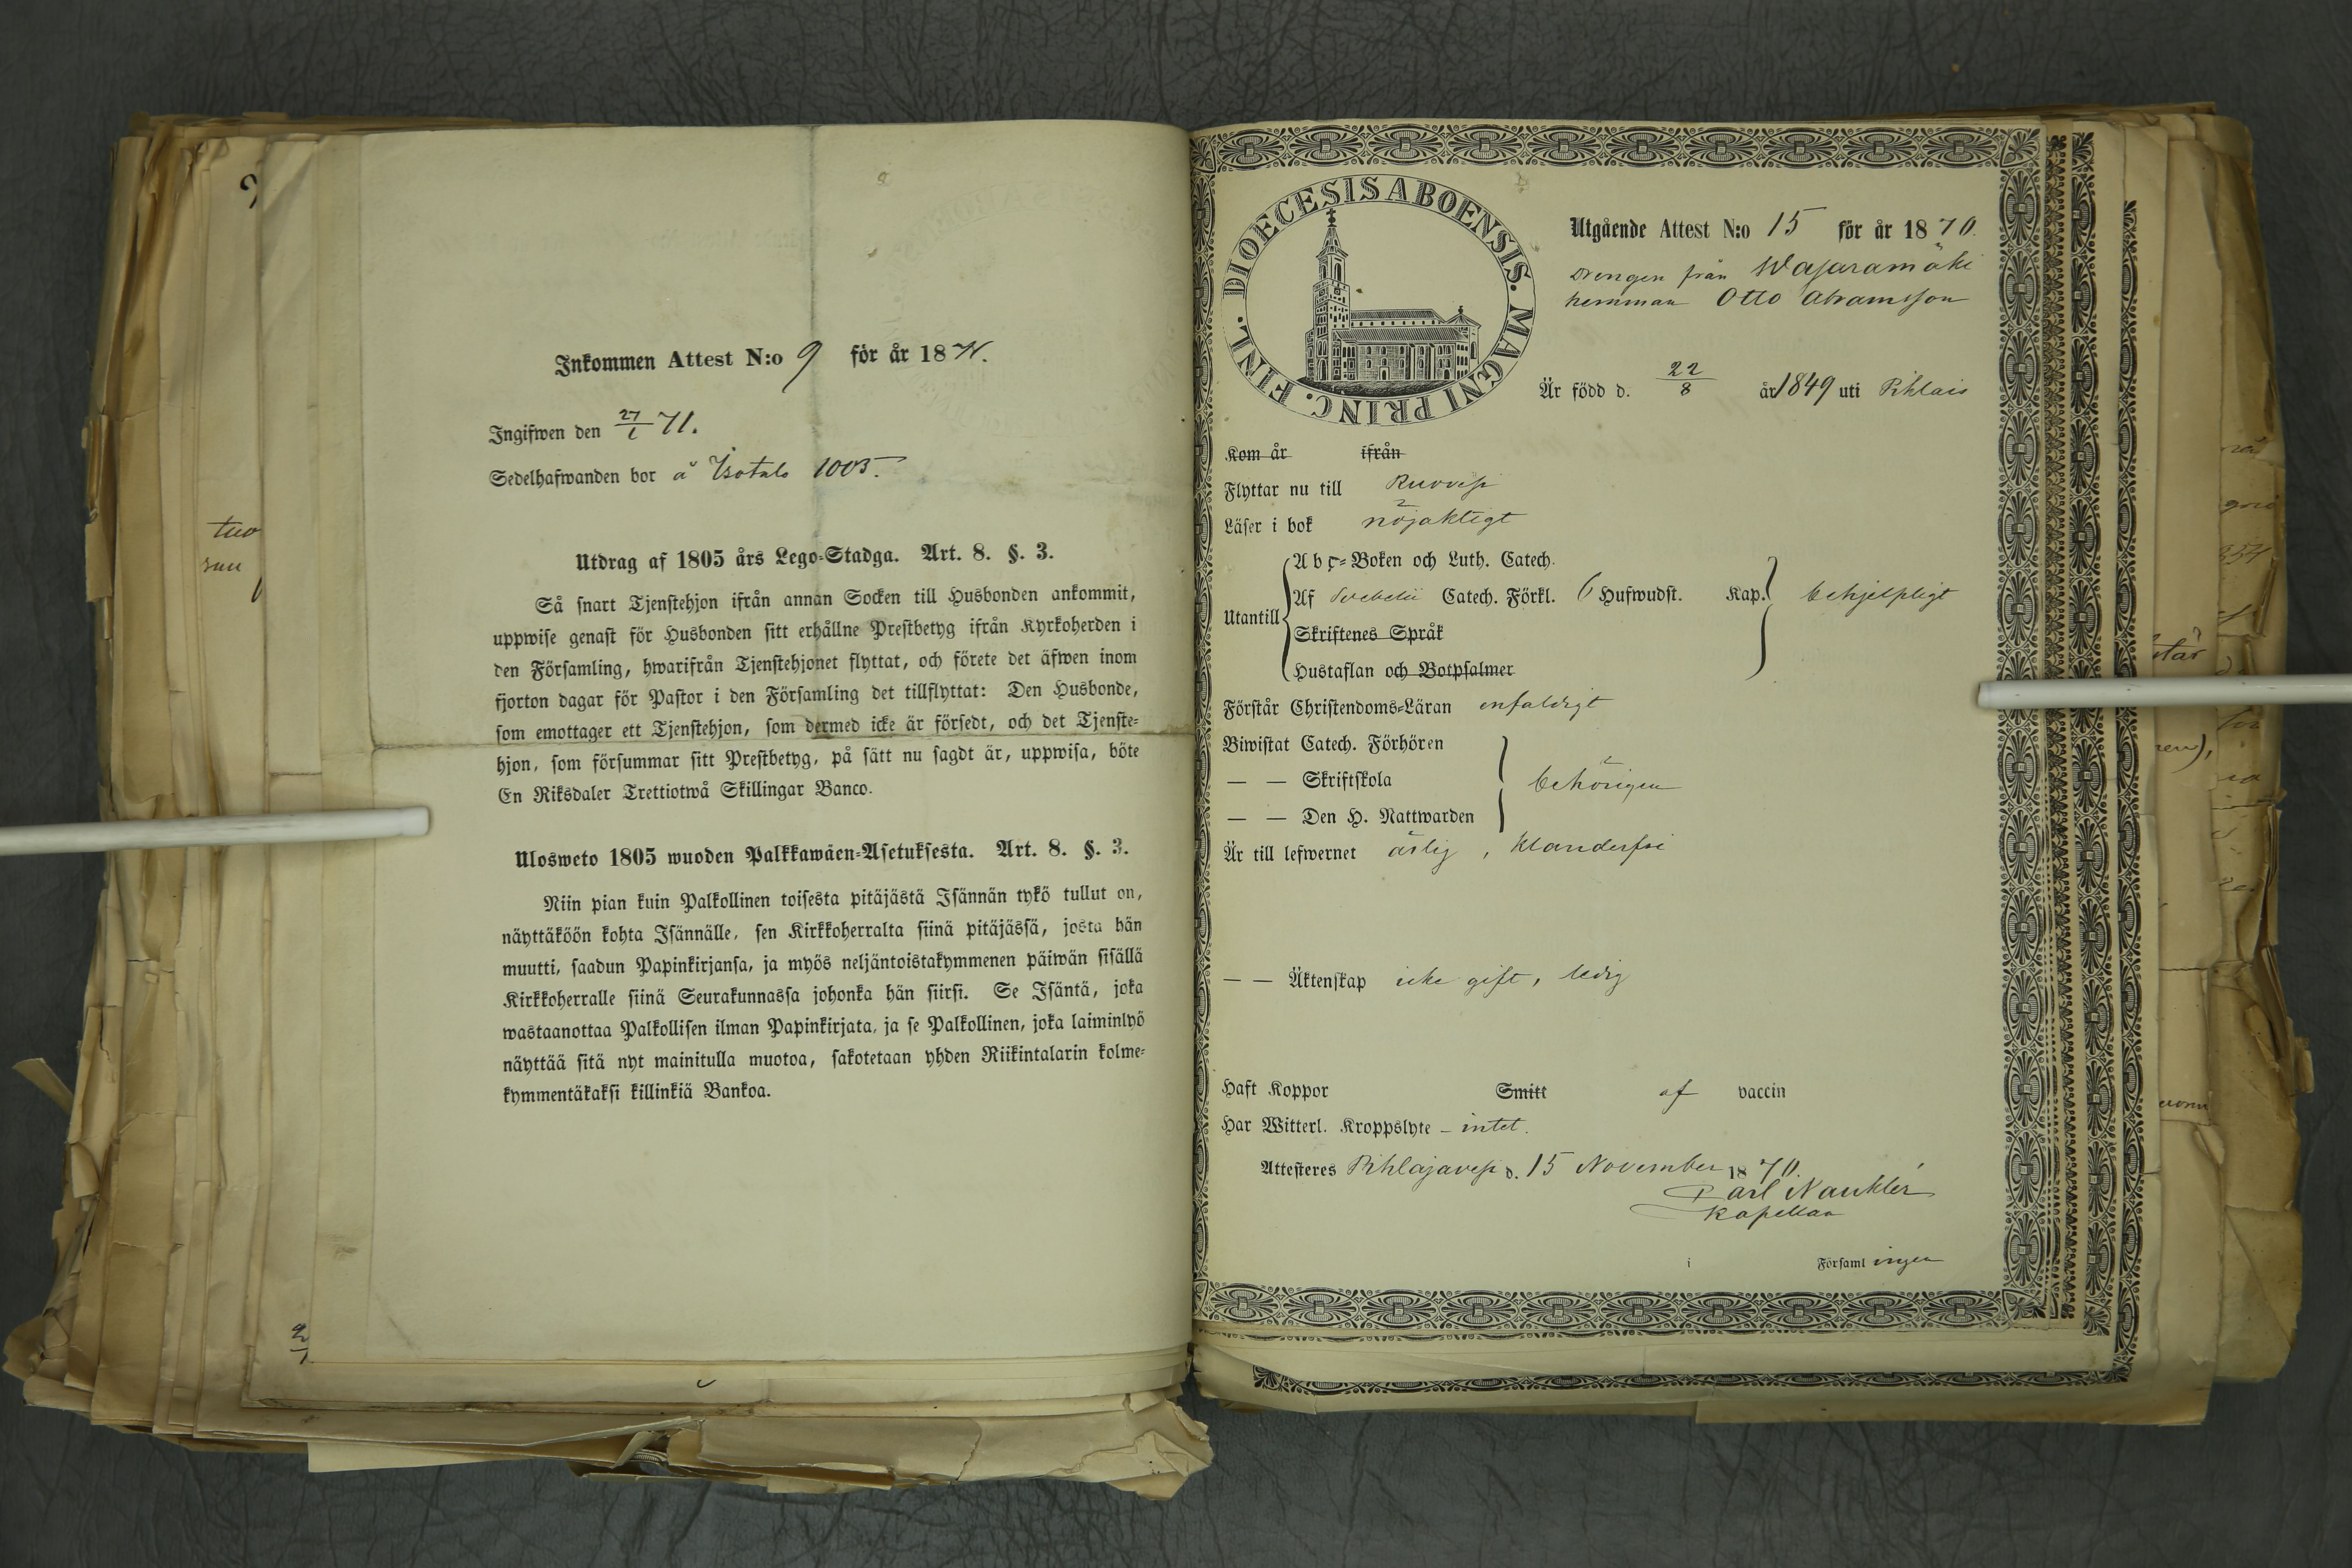 Inkommen Attest N:o 9 för år 1871.
Ingifwen den 27/1 71.
Sedelhafwanden bor å Isotalo 1005.
Utdrag af 1805 års Lego-Stadga. Art. 8. §. 3.
Så snart Tjenstehjon ifrån annan Socken till Husbonden ankommit,
uppwise genast för Husbonden sitt erhållne Prestbetyg ifrån Kyrkoherden i
den Församling, hwarifrån Tjenstehjonet flyttat, och förete det äfwen inom
fjorton dagar för Pastor i den Församling det tillflyttat: Den Husbonde,
som emottager ett Tjenstehjon, som dermed icke är försedt, och det Tjenste-
hjon, som försummar sitt Prestbetyg, på sätt nu sagdt är, uppwisa, böte
En Riksdaler Trettiotwå Skillingar Banco.
Ulosweto 1805 wuoden Palkkawäen-Asetuksesta. Art. 8. §. 3.
Niin pian kuin Palkollinen toisesta pitäjästä Isännän tykö tullut on,
näyttäköön kohta Isännälle, sen Kirkkoherralta siinä pitäjässä, josta hän
muutti, saadun Papinkirjansa, ja myös neljäntoistakymmenen päiwän sisällä
Kirkkoherralle siinä Seurakunnassa johonka hän siirsi. Se Isäntä, joka
wastaanottaa Palkollisen ilman Papinkirjata, ja se Palkollinen, joka laiminlyö
näyttää sitä nyt mainitulla muotoa, sakotetaan yhden Riikintalarin kolme-
kymmentäkaksi killinkiä Bankoa.
DIOECESIS ABOENSIS. MAGNI PRINC. FINL.
Utgående Attest N:o 15 för år 1870.
Drengen från Wajaramäki
hemman Otto Abramsson
Är född d. 22/8 år 1849 uti Pihlais
Kom år ifrån
Flyttar nu till Ruovesi
Läser i bok nöjaktigt
Utantill
Abc-Boken och Luth. Catech.
Af Svebelii Catech. Förkl. 6 Hufwudst. Kap. behjelpligt
Skriftenes Språk
Hustaflan och Botpsalmer
Förstår Christendoms-Läran enfaldigt
Biwistat Catech. Förhören
— — Skriftskola behörigen
— — Den H. Nattwarden
Är till lefwernet ärlig, klanderfri
— — Äktenskap icke gift, ledig
Haft Koppor Smitt af vaccin
Har Witterl. Kroppslyte – intet.
Attesteres Pihlajavesi d. 15 November 1870.
Carl Nankler
Kapellan
i Församlingen